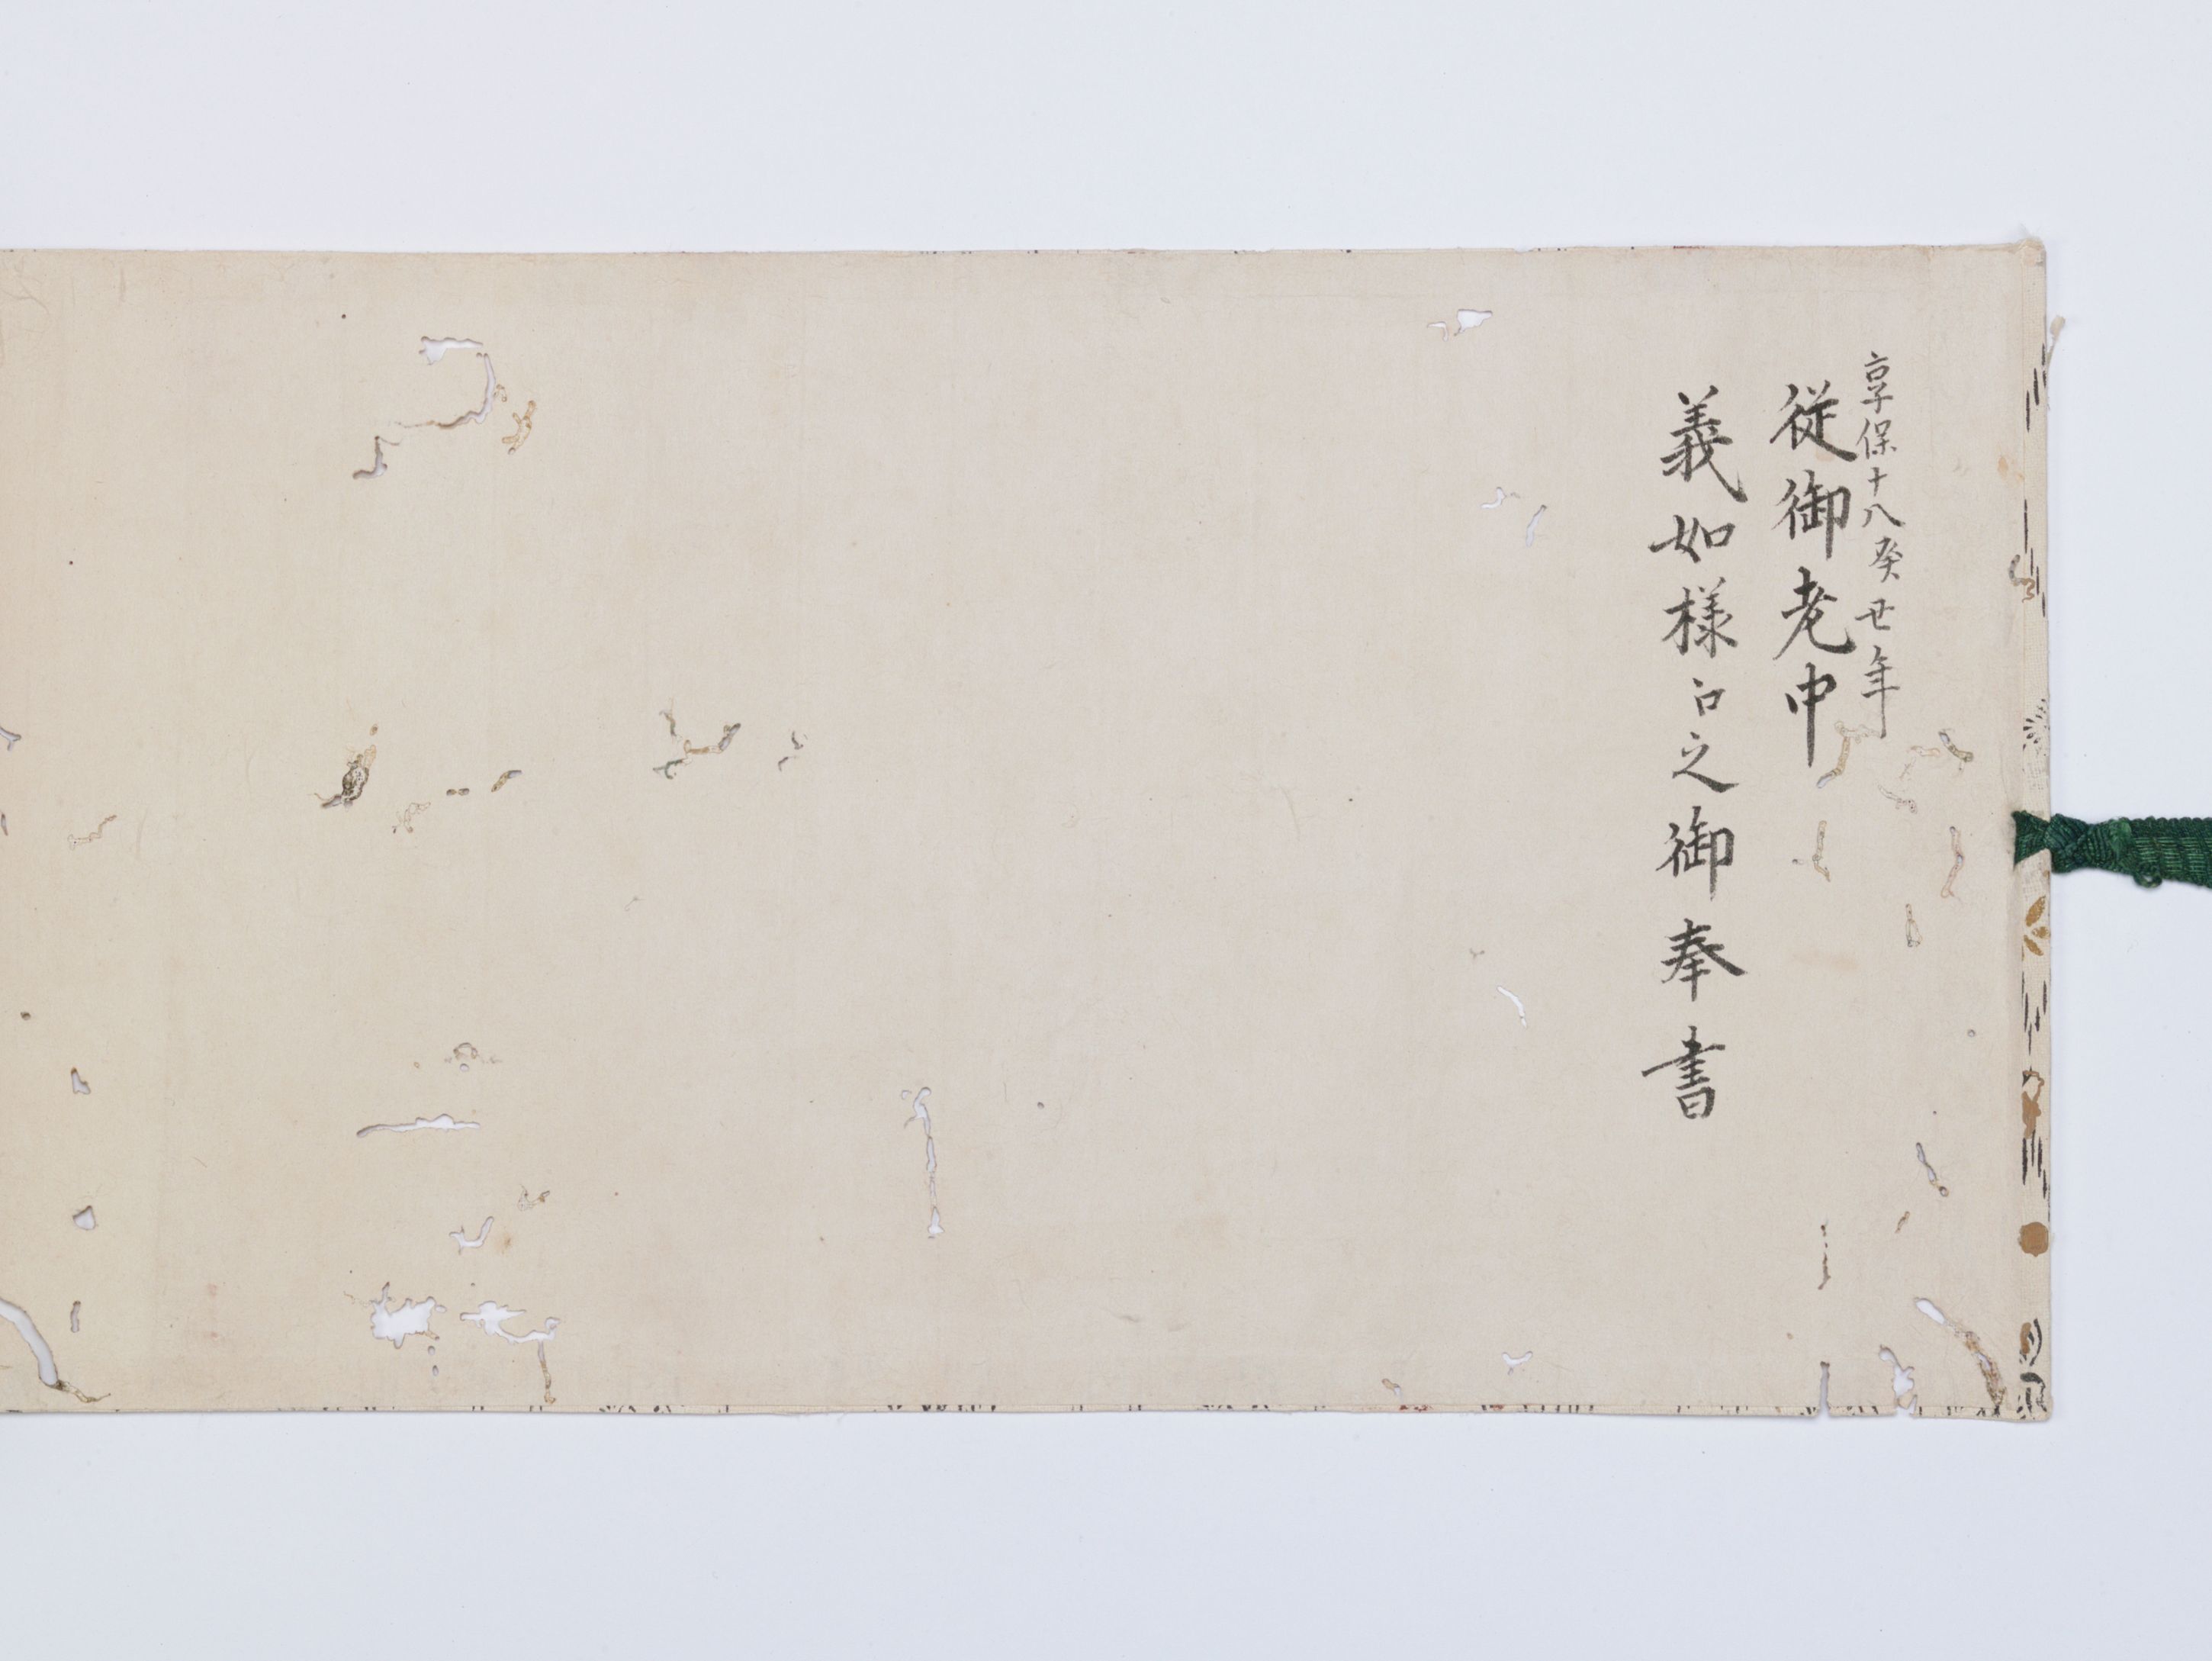 享保十八癸丑年
従御老中
義如様江之御奉書